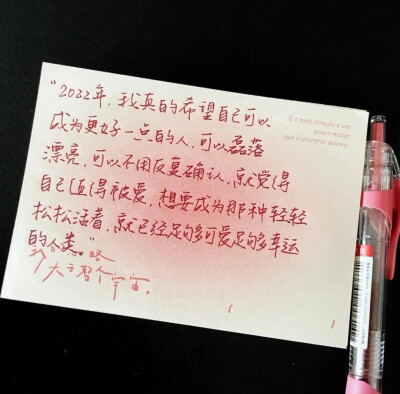 "2022年，我真的希望自己可以
成为更好一点的人，可以磊落
漂亮，可以不用反复确认，就觉得
自己值得被爱，想要成为那种轻轻
松松活着，就已经足够可爱足够幸运
的人类。"
大于整个宇宙。
E o meu coração é um
pouco maior
que o universo inteiro.
(            )